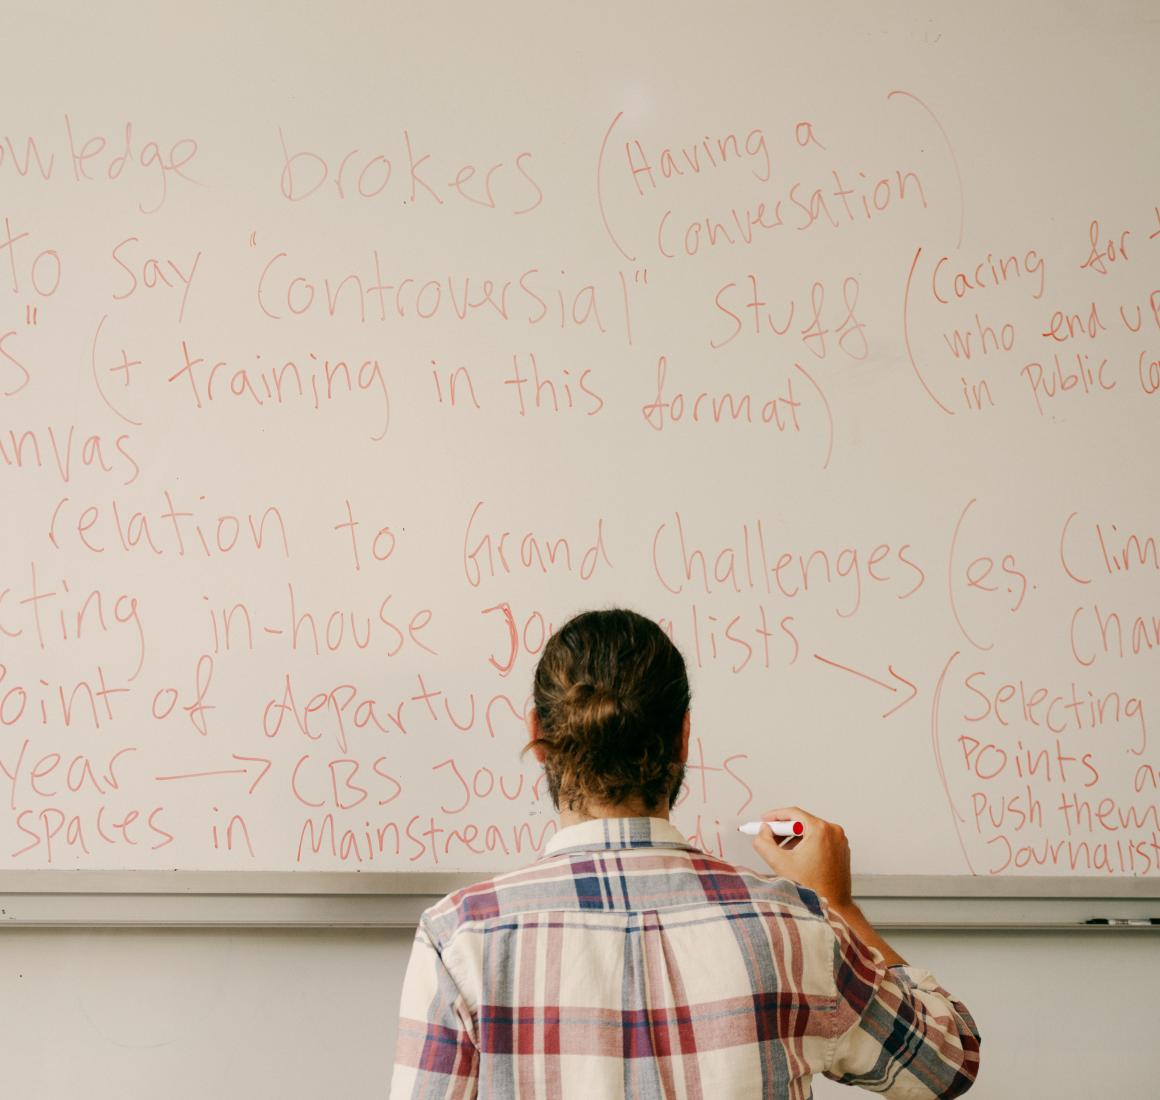 owledge brokers (Having a
Conversation)
to say "Controversial" Stuff (Caring for t
who end up
in Public Co
s" (+ training in this format)
anvas
relation to Grand Challenges (e.g. Clim
Chan
cting in-house Jo alists → (Selecting
Points a
Push them
Journalist
oint of departur
year → CBS Jour ists
spaces in Mainstream di